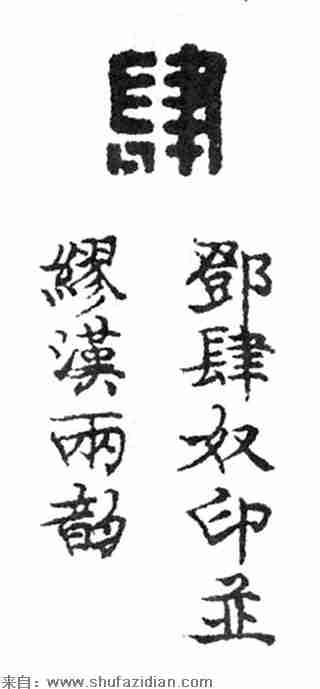 肆
鄧肆奴印並
繆漢兩韵
来自：www.shufazidian.com